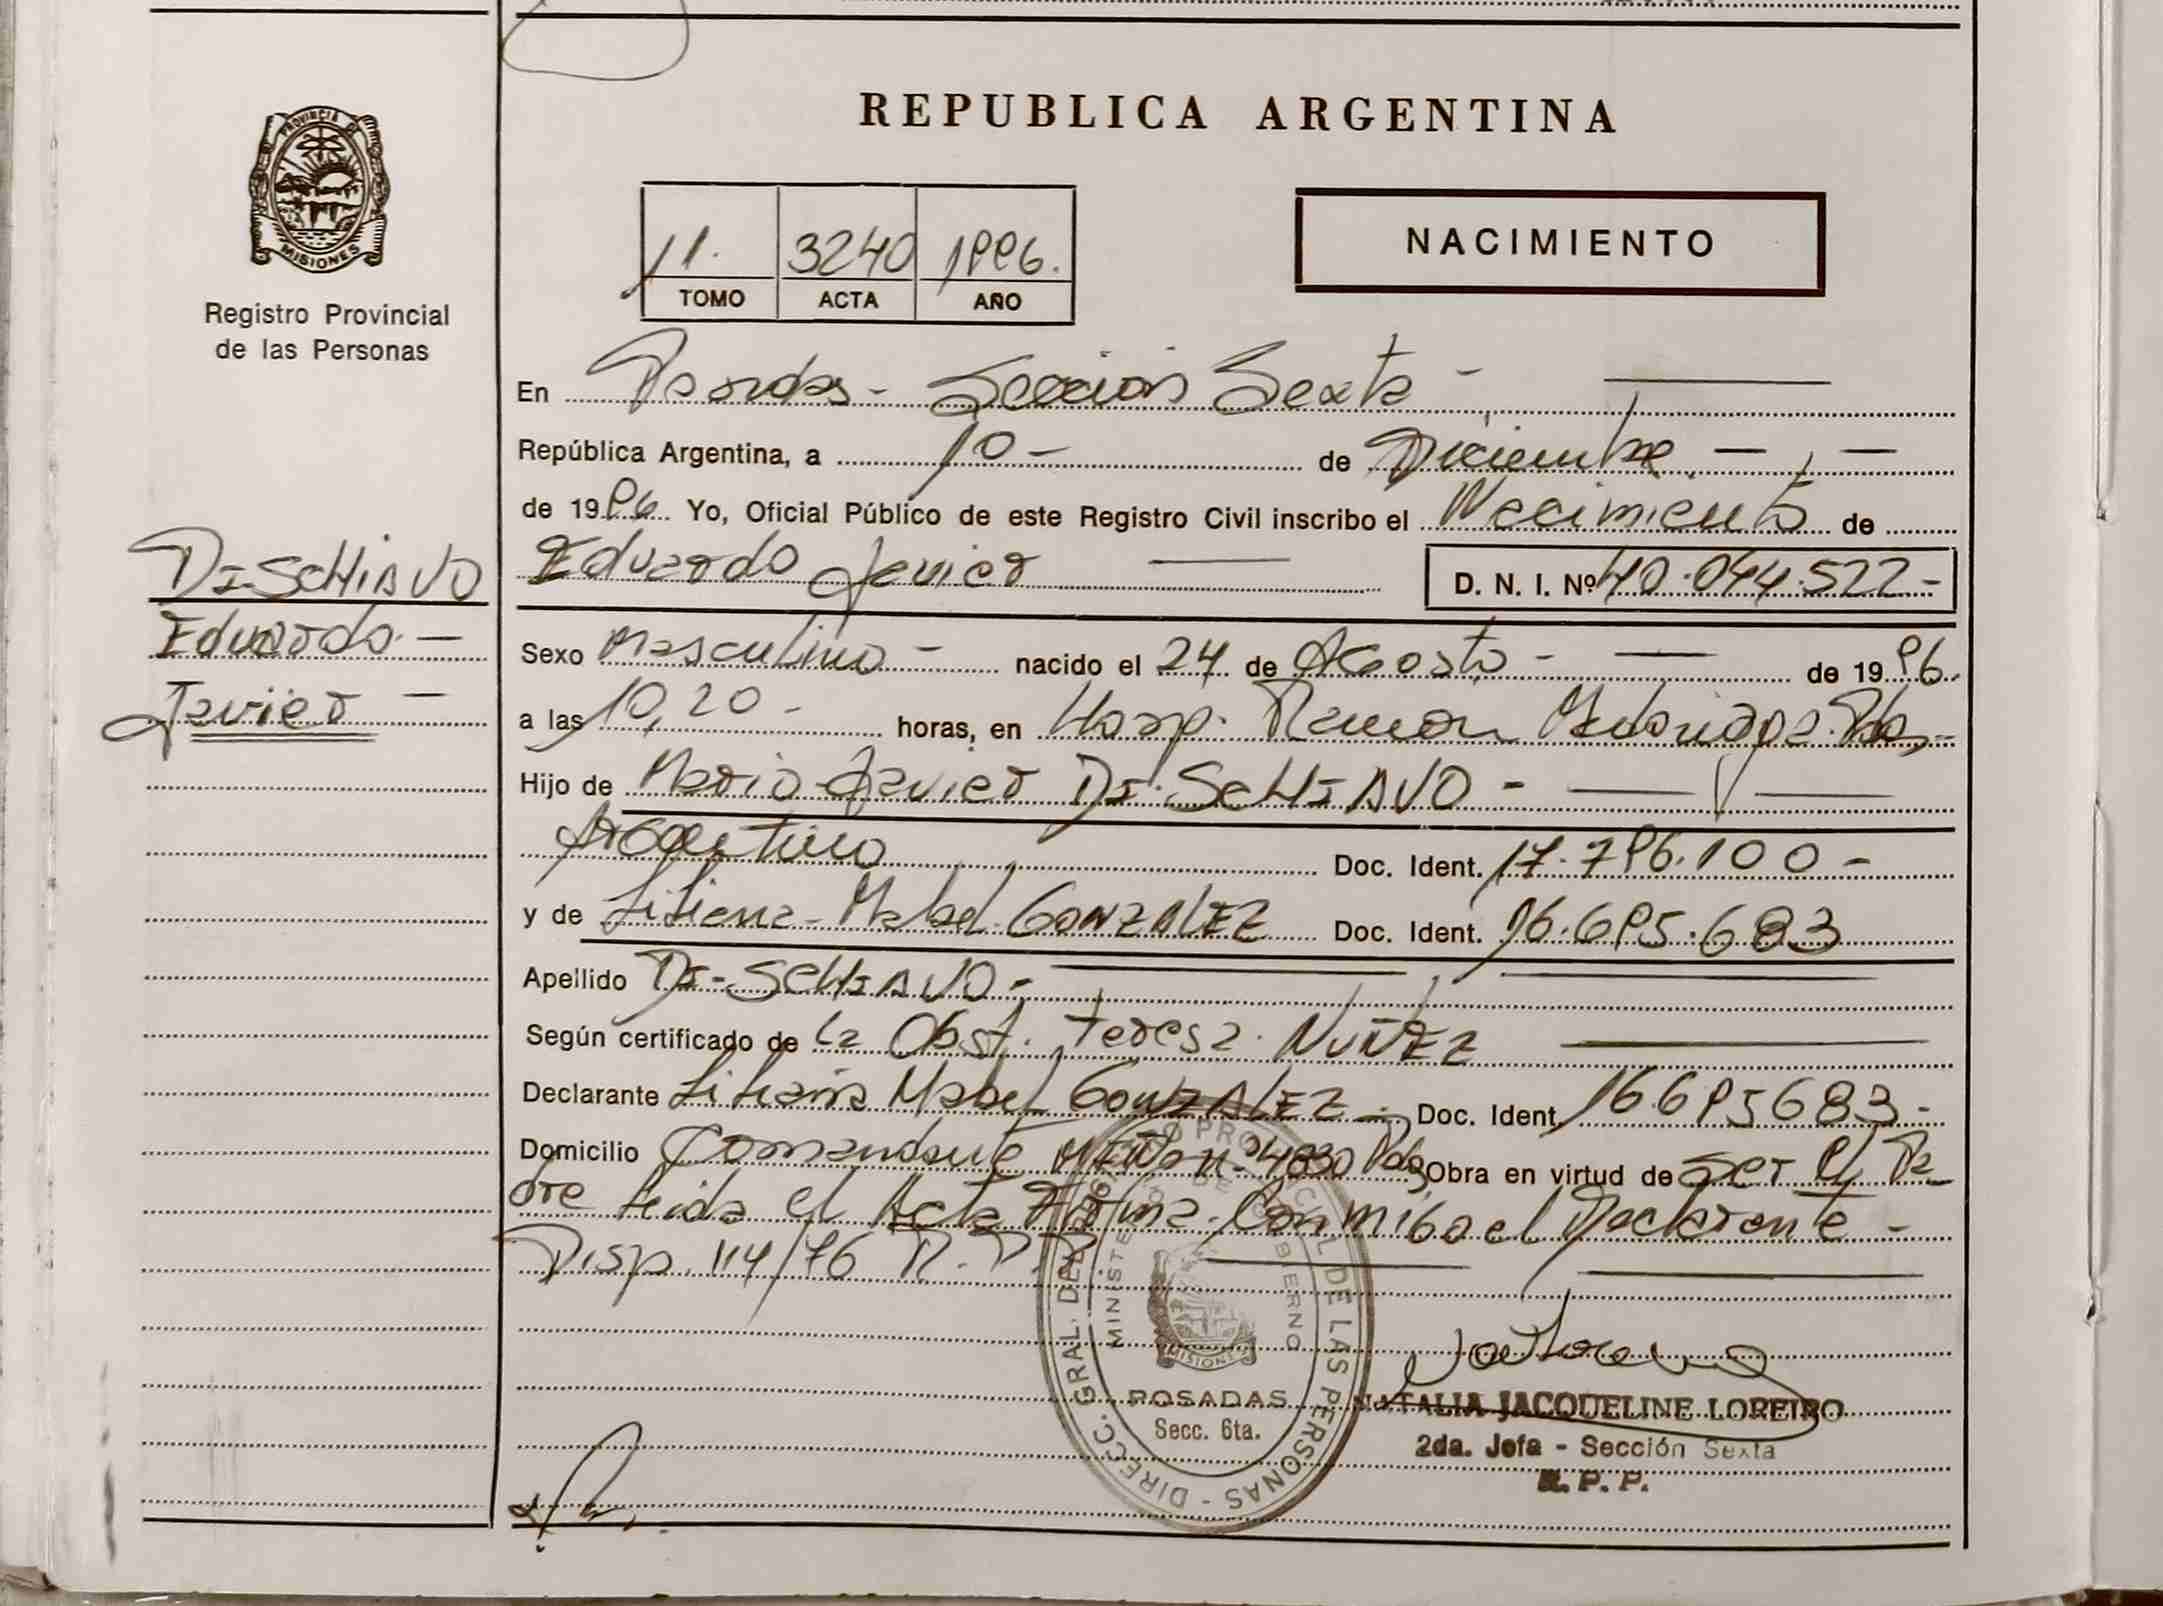 PROVINCIA DE
MISIONES
Registro Provincial
de las Personas
REPUBLICA ARGENTINA
11. 3240 1996.
TOMO ACTA AÑO
NACIMIENTO
En Posadas - Sección Sexta -
República Argentina, a 10 - de Diciembre. - , -
de 1996. Yo, Oficial Público de este Registro Civil inscribo el Nacimiento de
DI-SCHIAVO
Eduardo -
Javier -
Eduardo Javier D. N. I. Nº 40.044.522-
Sexo Masculino - nacido el 24 de Agosto - de 1996.
a las 10,20 - horas, en Hosp. Ramon Madariaga. Pdas,-
Hijo de Mario Javier DI-SCHIAVO -
Argentino Doc. Ident. 17.796.100 -
y de Liliana - Mabel GONZALEZ Doc. Ident. 16.695.683
Apellido DI-SCHIAVO -
Según certificado de la Obst. Teresa. NUÑEZ
Declarante Liliana Mabel GONZALEZ - Doc. Ident. 16695683 -
Domicilio Comandante MIÑO nº 4830 Pdas Obra en virtud de ser el Pa
dre leida el Acta Firma Conmigo el Declarante -
Disp. 114/76 R. P. P.
DIRECC. GRAL. DEL REGISTRO PROVINCIAL DE LAS PERSONAS -
MINISTERIO DE GOBIERNO
MISIONES
POSADAS
Secc. 6ta.
NATALIA JACQUELINE LOREIRO
2da. Jefa - Sección Sexta
R. P. P.